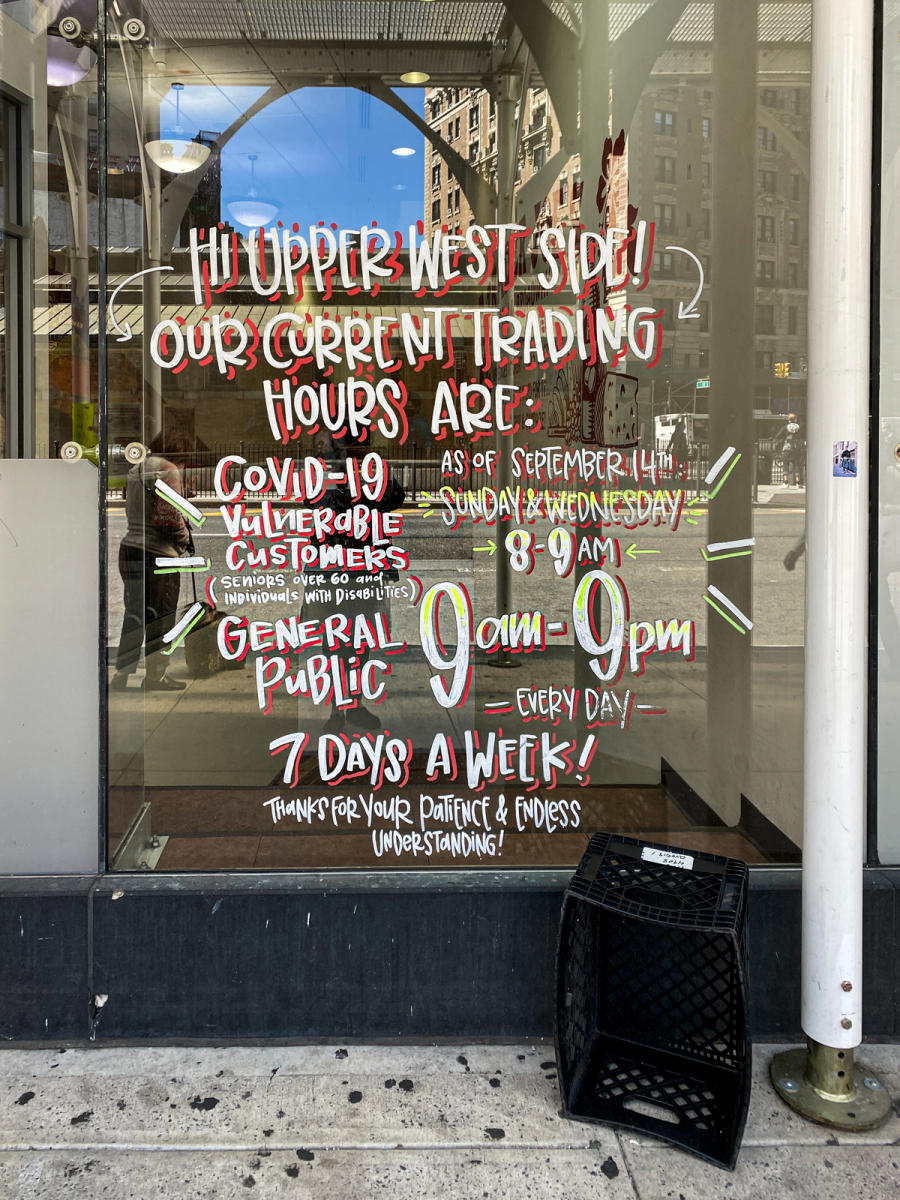 HI UPPER WEST SIDE!
OUR CURRENT TRADING
HOURS ARE:
COVID-19
VULNERABLE
CUSTOMERS
(SENIORS OVER 60 and
INDIVIDUALS WITH DISABILITIES)
AS OF SEPTEMBER 14TH:
SUNDAY & WEDNESDAY
8-9 AM
GENERAL
PUBLIC
9am-9pm
—EVERY DAY—
7 DAYS A WEEK!
THANKS FOR YOUR PATIENCE & ENDLESS
UNDERSTANDING!